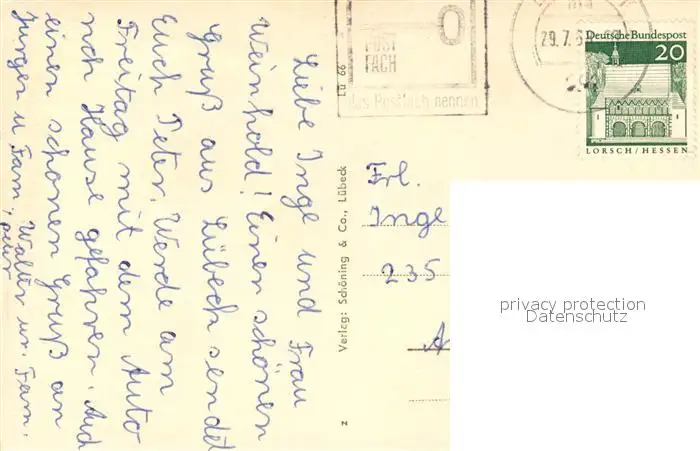 Liebe Inge und Frau
Weinhold! Einen schönen
Gruß aus Lübeck sendet
Euch Peter. Werde am
Freitag mit dem Auto
nch Hause gefahren. Auch
einen schönen Gruß an
Jürgen u Fam, Walter un. Fam.
Lü 66
Verlag: Schöning & Co., Lübeck
z
POST
FACH
das Postfach nennen
29.7.6
Deutsche Bundespost
20
LORSCH/HESSEN
Frl.
Inge
235
privacy protection
Datenschutz